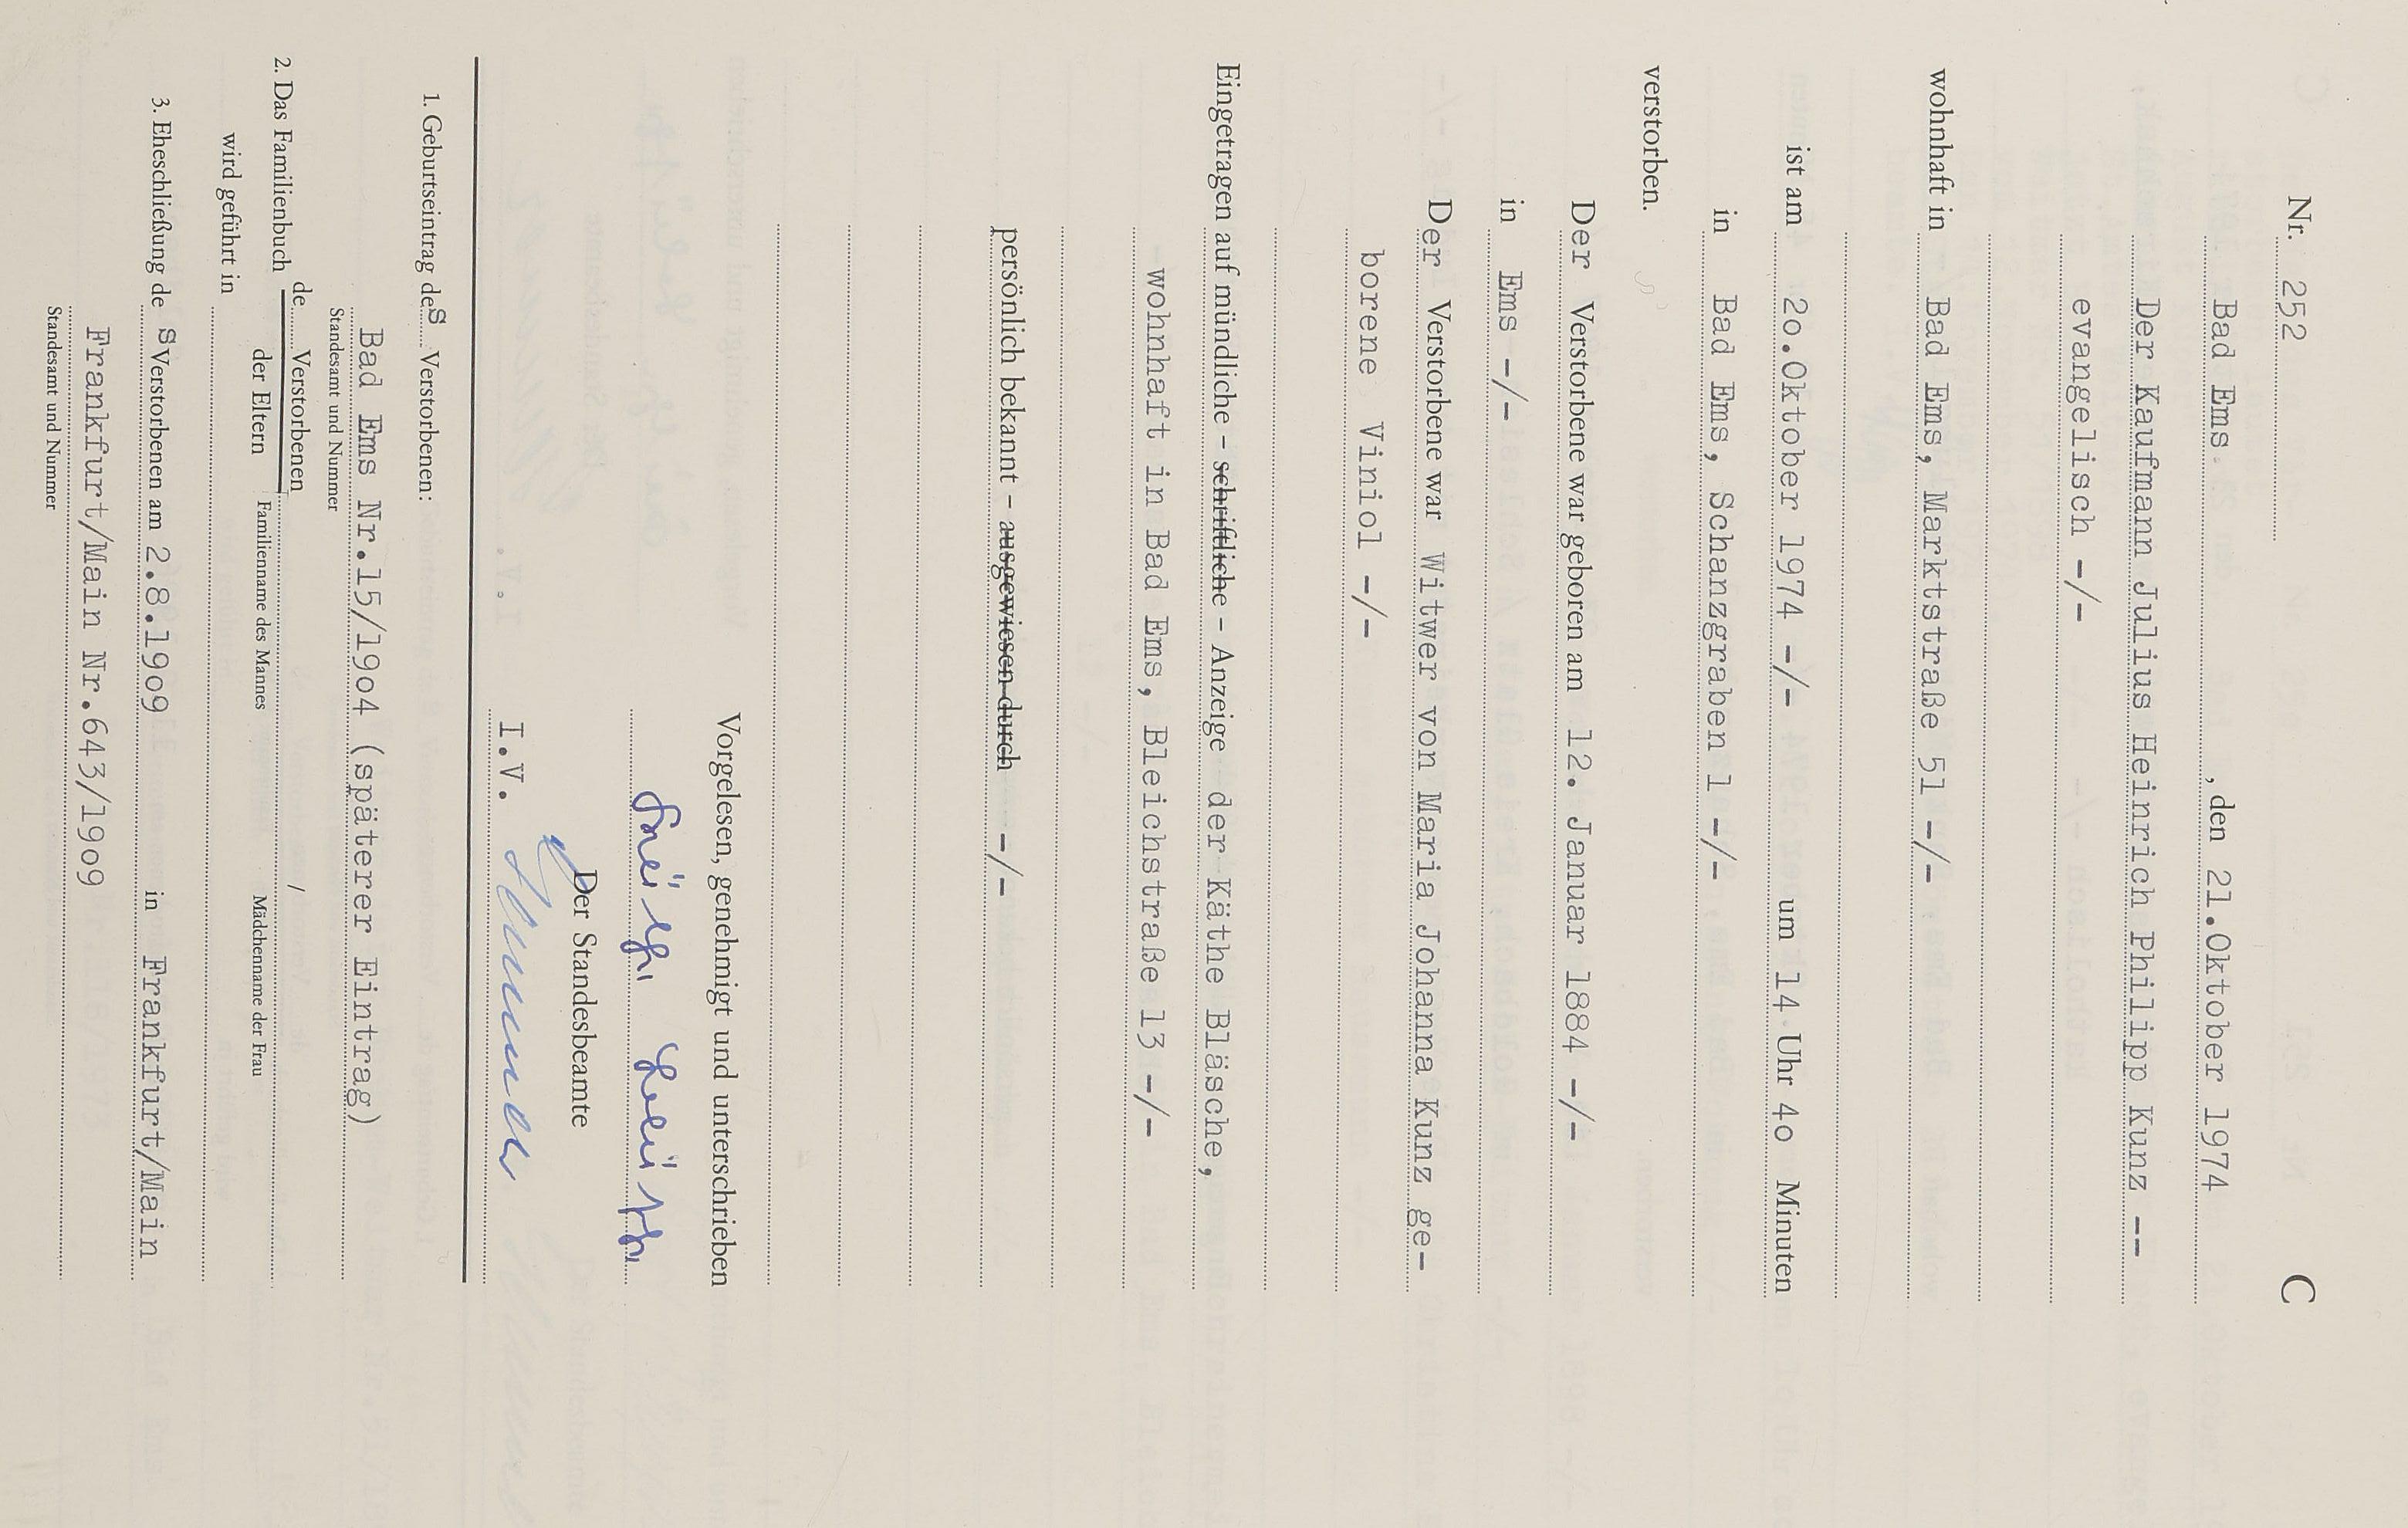 Nr. 252 C
Bad Ems , den 21.Oktober 1974
Der Kaufmann Julius Heinrich Philipp Kunz --
evangelisch -/-
wohnhaft in Bad Ems, Marktstraße 51 -/-
ist am 2o.Oktober 1974 -/- um 14 Uhr 4o Minuten
in Bad Ems, Schanzgraben 1 -/-
verstorben.
Der Verstorbene war geboren am 12. Januar 1884 -/-
in Ems -/-
Der Verstorbene war Witwer von Maria Johanna Kunz ge-
borene Viniol -/-
Eingetragen auf mündliche - schriftliche - Anzeige der Käthe Bläsche,
wohnhaft in Bad Ems, Bleichstraße 13 -/-
persönlich bekannt - ausgewiesen durch -/-
Vorgelesen, genehmigt und unterschrieben
Der Standesbeamte
I.V.
1. Geburtseintrag des Verstorbenen:
Bad Ems Nr.15/19o4 (späterer Eintrag)
Standesamt und Nummer
2. Das Familienbuch de Verstorbenen /
der Eltern Familienname des Mannes Mädchenname der Frau
wird geführt in
3. Eheschließung des Verstorbenen am 2.8.19o9 in Frankfurt/Main
Frankfurt/Main Nr.643/19o9
Standesamt und Nummer